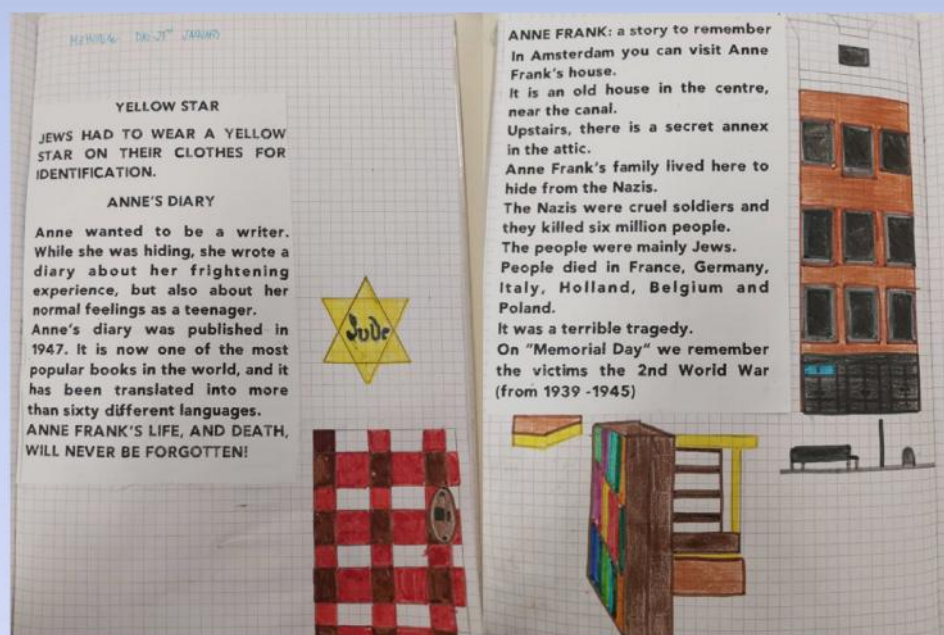 MEMORIAL DAY-27TH JANUARY
YELLOW STAR
JEWS HAD TO WEAR A YELLOW
STAR ON THEIR CLOTHES FOR
IDENTIFICATION.
ANNE'S DIARY
Anne wanted to be a writer.
While she was hiding, she wrote a
diary about her frightening
experience, but also about her
normal feelings as a teenager.
Anne's diary was published in
1947. It is now one of the most
popular books in the world, and it
has been translated into more
than sixty different languages.
ANNE FRANK'S LIFE, AND DEATH,
WILL NEVER BE FORGOTTEN!
JuDe
ANNE FRANK: a story to remember
In Amsterdam you can visit Anne
Frank's house.
It is an old house in the centre,
near the canal.
Upstairs, there is a secret annex
in the attic.
Anne Frank's family lived here to
hide from the Nazis.
The Nazis were cruel soldiers and
they killed six million people.
The people were mainly Jews.
People died in France, Germany,
Italy, Holland, Belgium and
Poland.
It was a terrible tragedy.
On "Memorial Day" we remember
the victims the 2nd World War
(from 1939 -1945)